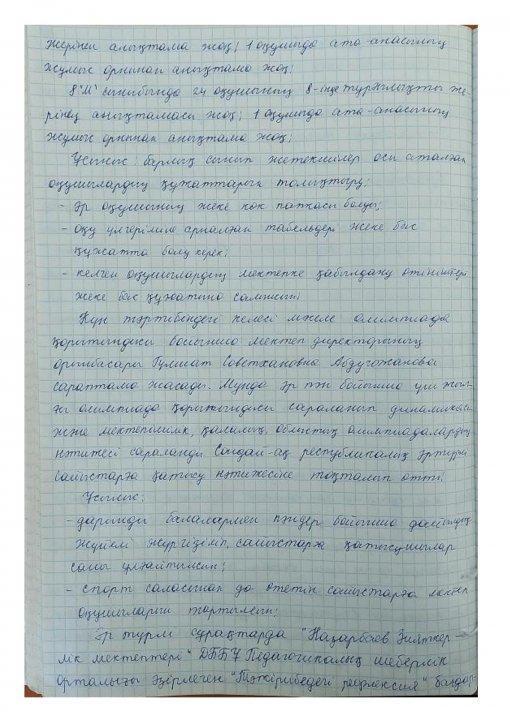 жерінен анықтама жоқ; 1 оқушыда ата-анасының
жұмыс орнынан анықтама жоқ;
8 "М" сыныбында 24 оқушының 8-інде тұрғылықты же
рінен анықтамасы жоқ; 1 оқушыда ата-анасының
жұмыс орнынан анықтама жоқ;
Ұсыныс: барлық сынып жетекшілер осы аталған
оқушылардың құжаттарын толықтыру;
- әр оқушының жеке көк папкасы болуы;
- оқу үлгеріміне арналған табельдері жеке бос
құжатта болу керек;
- келген оқушылардың мектепке қабылдану өтініштері
жеке бос құжатта салынсын
Күн тәртібіндегі келесі мәселе олимпиада
қорытындысы бойынша мектеп директорының
орынбасары Гулшат Советхановна Абдугожанова
сараптама жасады. Мұнда әр пән бойынша үш жыл-
ғы олимпиада қорытындысы сараланып динамикасы
және мектепішілік, қалалық, облыстық олимпиадалардың
нәтижесі сараланды. Сондай-ақ республикалық әртүрлі
сайыстарға қатысу нәтижесіне тоқталып өтті.
Ұсыныс:
- дарынды балалармен пәндер бойынша дайындық
жүйелі жүргізіліп, сайыстарға қатысушылар
саны ұлғайтылсын;
- спорт саласынан да өтетін сайыстарға
оқушыларын тартылсын;
Әр түрлі сұрақтарда "Назарбаев Зияткер-
лік мектептері" ДББҰ Педагогикалық шеберлік
Орталығы әзірлеген "Тәжірибедегі рефлексия" бағдар-